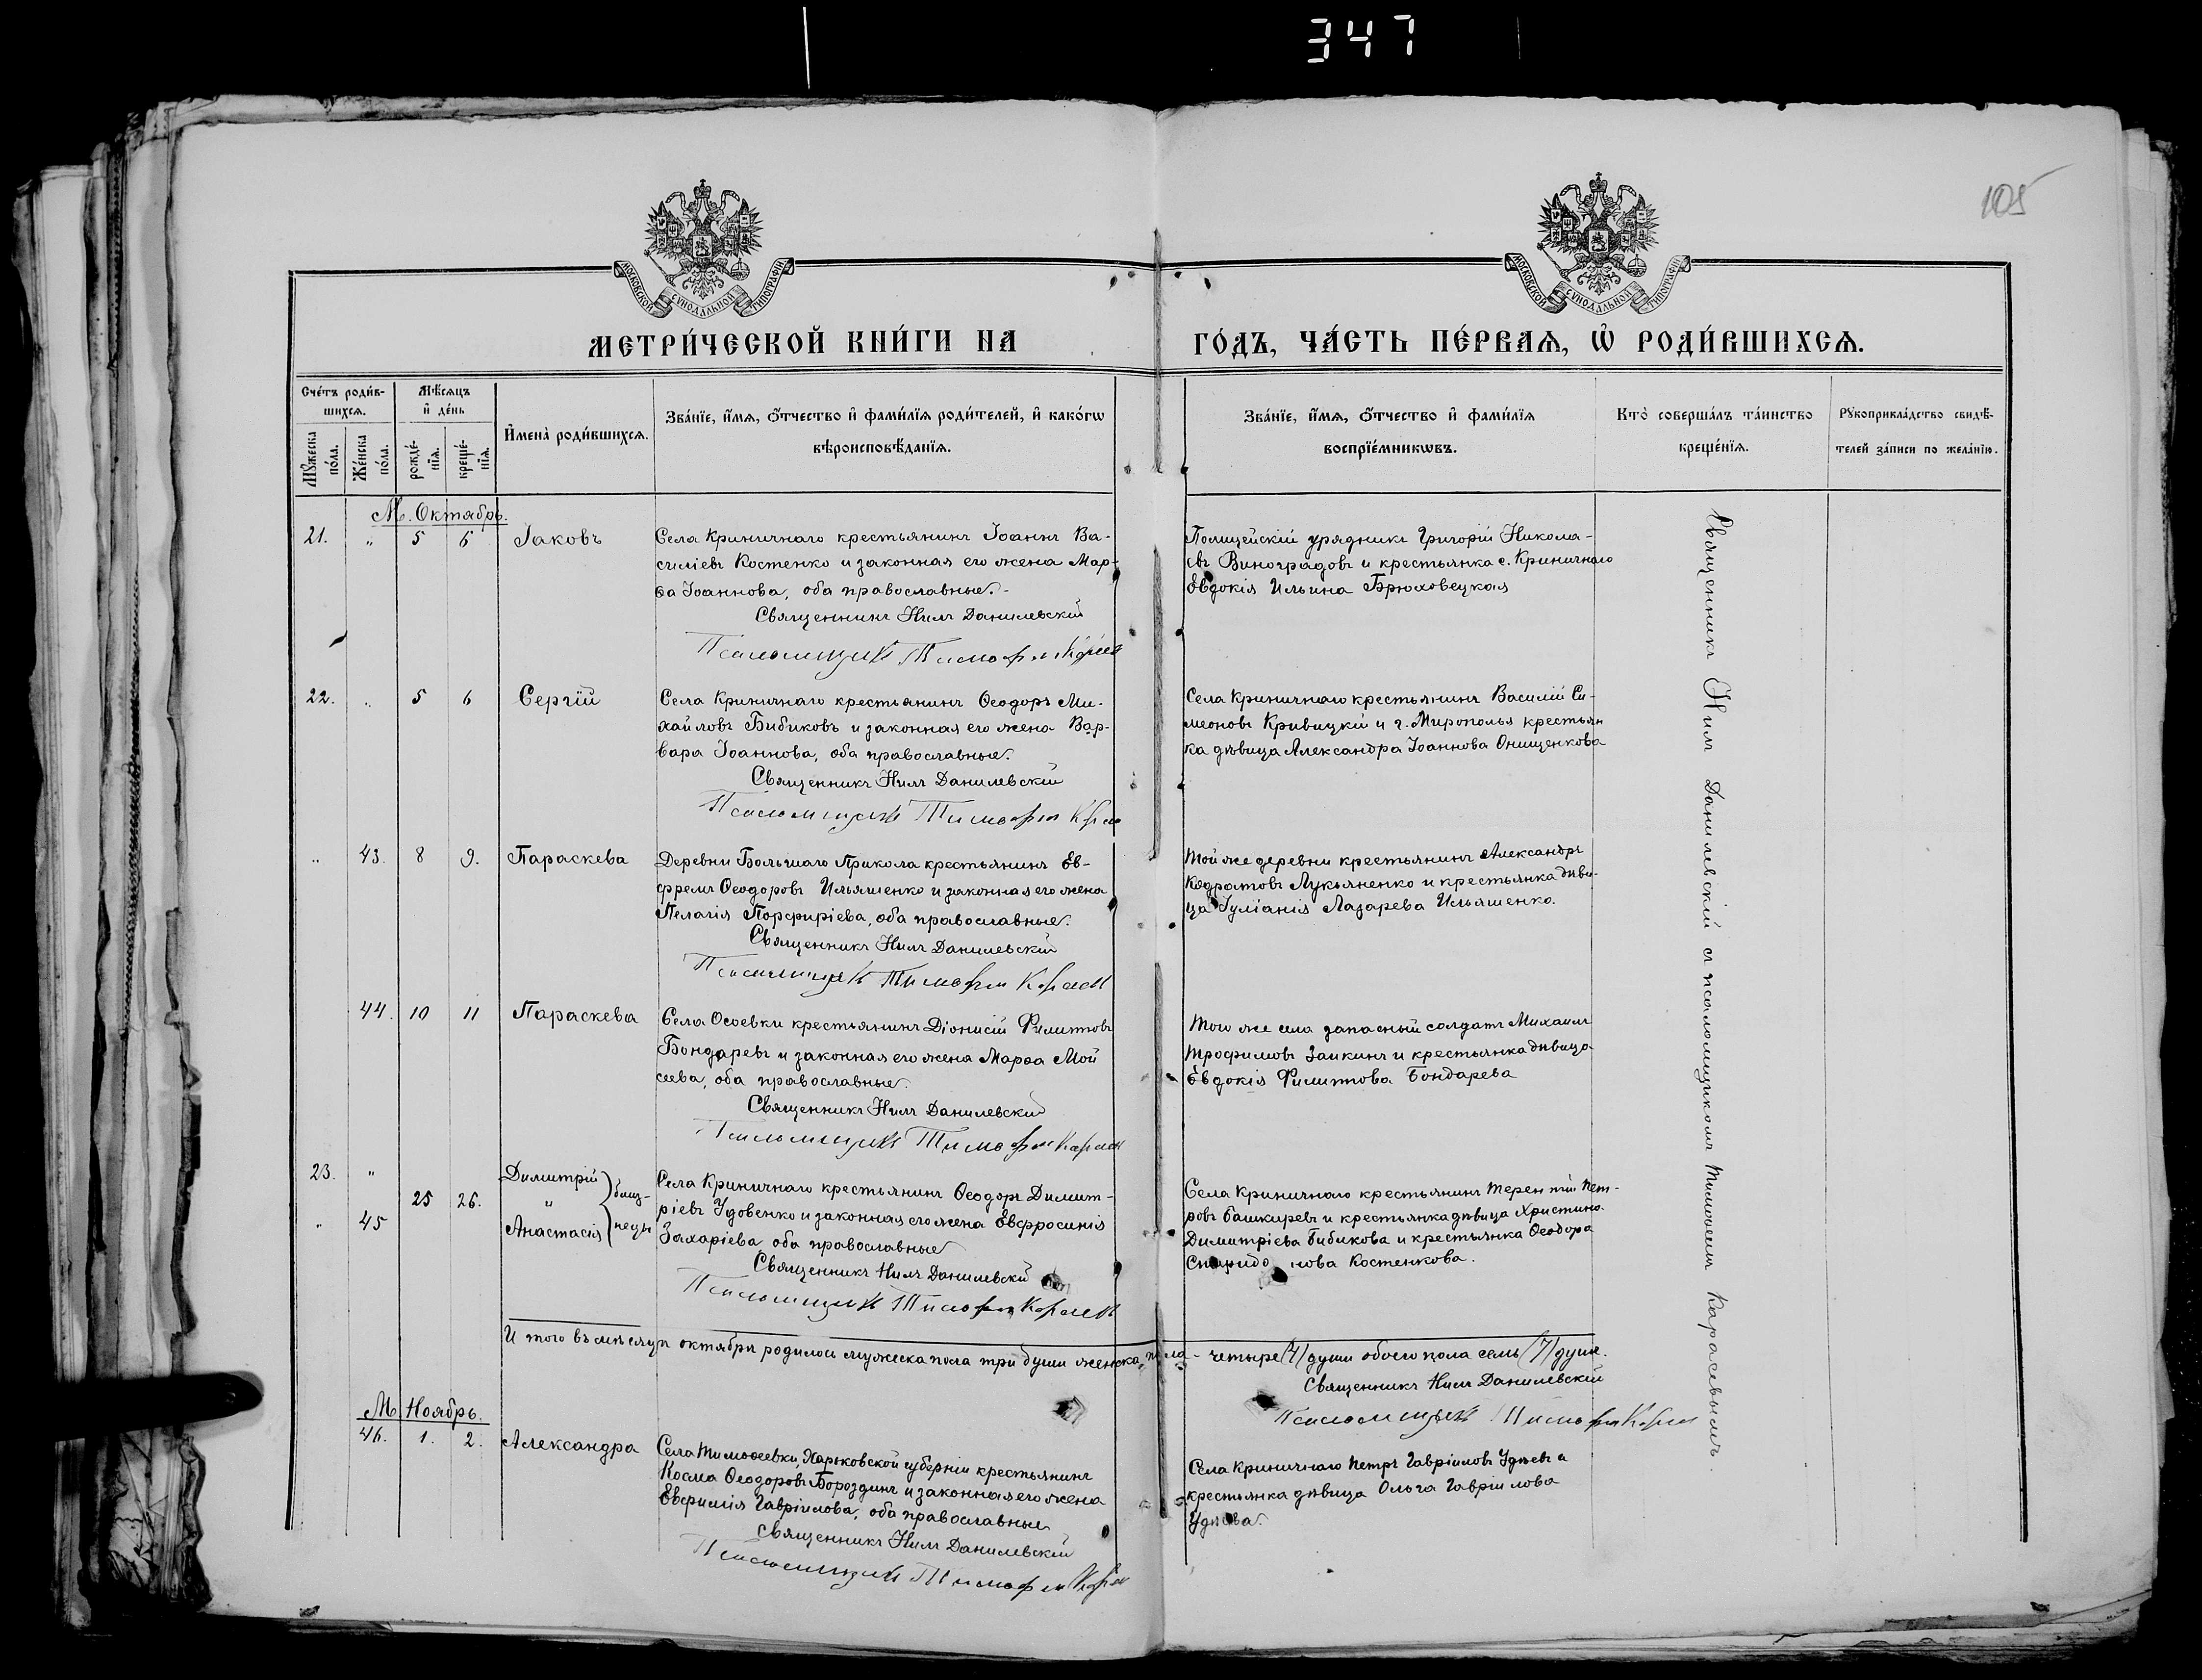 347
105
МОСКОВСКОЙ СѴНОДАЛЬНОЙ ТИПОГРАФІИ
МОСКОВСКОЙ СѴНОДАЛЬНОЙ ТИПОГРАФІИ
МЕТРИ́ЧЕСКОЙ КНИ́ГИ НА ГО́ДЪ, ЧА́СТЬ ПЕ́РВАѦ, Ѽ РОДИ́ВШИХСѦ.
Сче́тъ роди́в-
шихсѧ.
Мꙋ́жеска
по́ла.
Же́нска
по́ла.
Мѣ́сѧцъ
и҆ де́нь
рожде́-
нїѧ.
креще́-
нїѧ.
И҆мена̀ роди́вшихсѧ.
Зва́нїе, и҆́мѧ, ѻ҆́тчество и҆ фами́лїѧ роди́телей, и҆ како́гѡ
вѣроисповѣ́данїѧ.
Зва́нїе, и҆́мѧ, ѻ҆́тчество и҆ фами́лїѧ
воспрїе́мникѡвъ.
Кто̀ соверша́лъ та́инство
креще́нїѧ.
Рꙋкоприкла́дство свидѣ́-
телей за́писи по жела́нїю.
М. Октябрь.
21. " 5 6 Іаковъ
Села Криничнаго крестьянинъ Іоаннъ Ва-
силіевъ Костенко и законная его жена Мар-
ѳа Іоаннова, оба православные.
Священникъ Нилъ Данилевскій
Псаломщикъ Тимофей
Полицейскій урядникъ Григорій Никола-
евъ Виноградовъ и крестьянка с. Криничнаго
Евдокія Ильина Брюховецкая
22. " 5 6 Сергій
Села Криничнаго крестьянинъ Ѳеодоръ Ми-
хайловъ Бибиковъ и законная его жена Вар-
вара Іоаннова, оба православные.
Священникъ Нилъ Данилевскій
Псаломщикъ Тимофей
Села Криничнаго крестьянинъ Василій Си-
меоновъ Кривицкій и г. Мирополья крестьян
ка дѣвица Александра Іоаннова Онищенкова
" 43. 8 9. Параскева
Деревни Большаго Прикола крестьянинъ Еф-
фремъ Ѳеодоровъ Ильяшенко и законная его жена
Пелагія Порфиріева, оба православные.
Священникъ Нилъ Данилевскій
Псаломщикъ Тимофей
Той же деревни крестьянинъ Александръ
Кодратовъ Лукьяненко и крестьянка дѣви-
ца Іуліанія Лазарева Ильяшенко.
44. 10 11 Параскева
Села Осоевки крестьянинъ Діонисій Филиповъ
Бондаревъ и законная его жена Марѳа Мой
сеева, оба православные.
Священникъ Нилъ Данилевскій
Псаломщикъ Тимофей
Того же села запасный солдатъ Михаилъ
Трофимовъ Заикинъ и крестьянка дѣвица
Евдокія Филипова Бондарева
23. " Димитрій
25 26. " близ-
" 45 Анастасія нецы
Села Криничнаго крестьянинъ Ѳеодоръ Димит-
ріевъ Удовенко и законная его жена Евфросинія
Захаріева оба православные
Священникъ Нилъ Данилевскій
Псаломщикъ Тимофей
Села Криничнаго крестьянинъ Терентій Пет-
ровъ Башкиревъ и крестьянка дѣвица Христина
Димитріева Бибикова и крестьянка Ѳеодора
Спиридонова Костенкова.
И того въ мѣсяцѣ октябрѣ родилось мужеска пола три души женска пола - четыре (4) души обоего пола семь (7) душъ.
Священникъ Нилъ Данилевскій
Псаломщикъ Тимофей
М. Ноябрь.
46. 1. 2. Александра
Села Тимоѳеевки, Харьковской губерніи крестьянинъ
Косма Ѳеодоровъ Бороздинъ и законная его жена
Евфимія Гавріилова, оба православные
Священникъ Нилъ Данилевскій
Псаломщикъ Тимофей
Села Криничнаго Петръ Гавріиловъ Удѣевъ и
крестьянка дѣвица Ольга Гавріилова
Удѣева.
Священникъ Нилъ Данилевскій съ псаломщикомъ Тимоѳеемъ Карасевымъ.